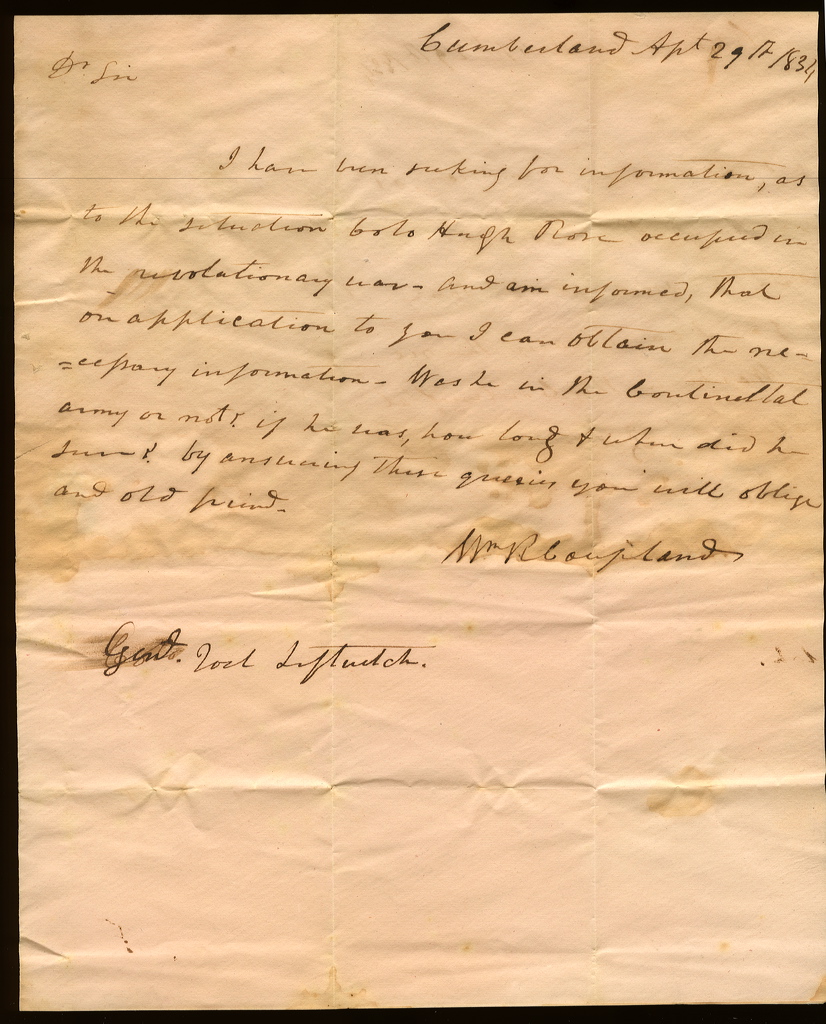 Cumberland Apl 29th 1834
Dr Sir
I have been seeking for information, as
to the situation Colo Hugh Rose occupied in
the revolutionary war - and am informed, that
on application to you I can obtain the ne-
=cessary information - Was he in the Continettal
army or not? if he was, how long & when did he
serve? by answering these queries you will oblige
and old friend -
Wm R Coupland
Genl. Joel Leftwitch.